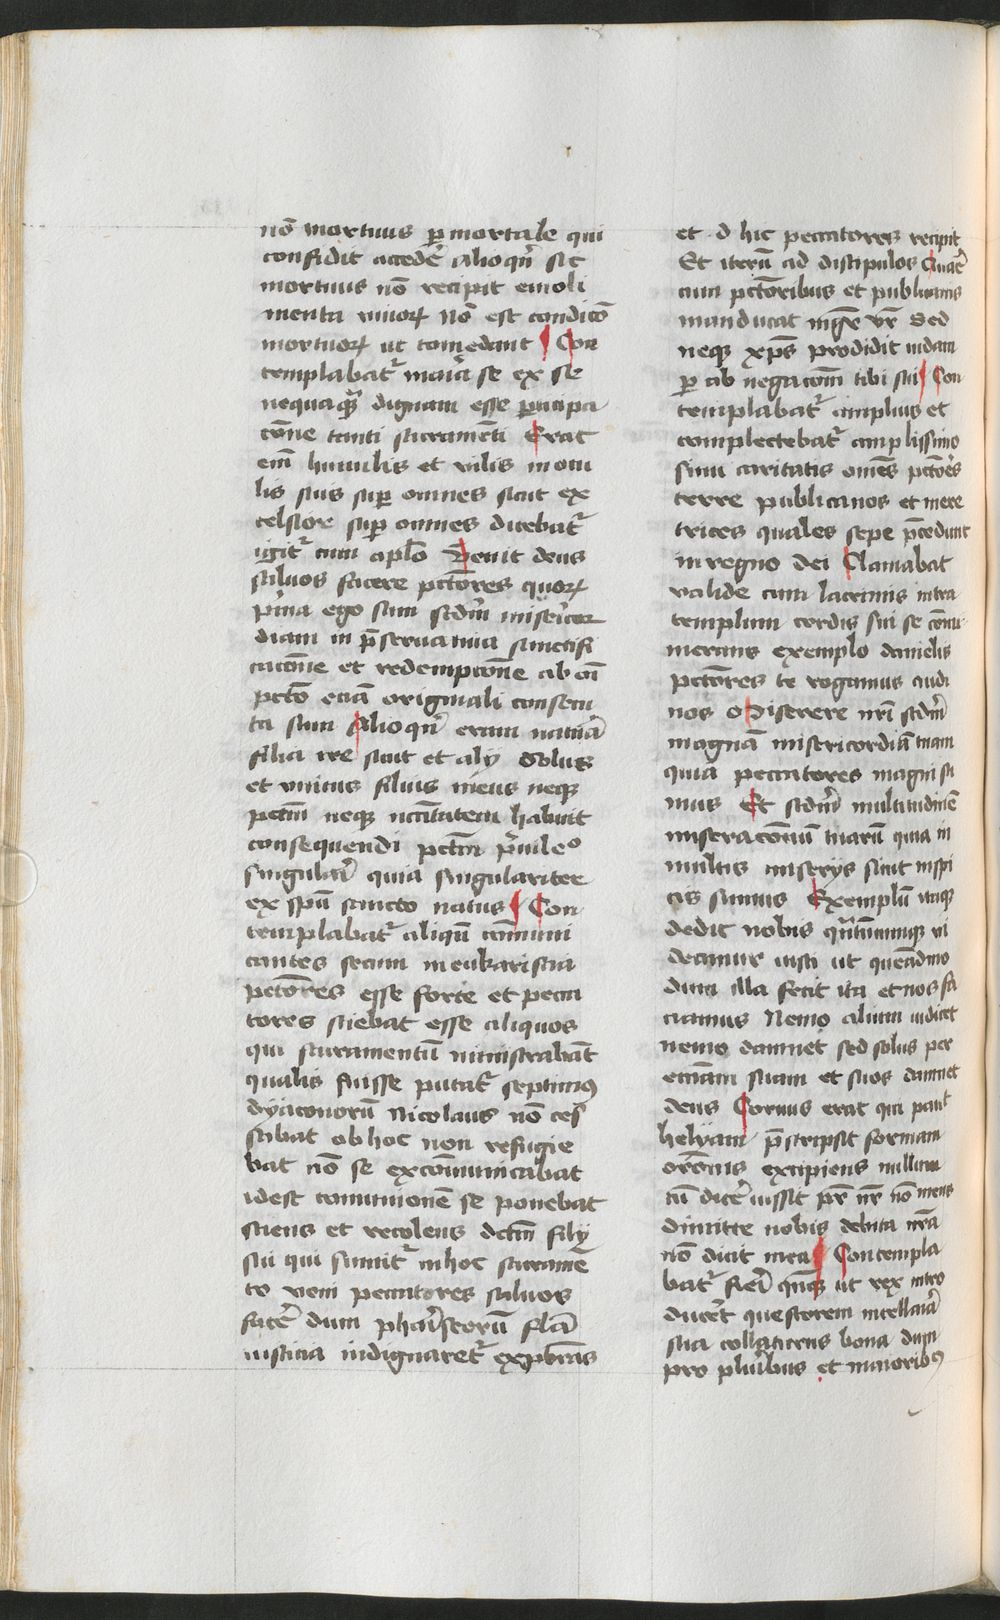 nō mortuus ꝑ mortale qui
confidit accedē alioqn̄ sic
mortuus nō recipit emoli
menta viuoꝝ Nō est condicō
mortuoꝝ ut comedant ¶ Con
templabat᷑ maria se ex se
nequaqꝫ dignam esse ꝑticipa
cōne tanti sacramēti Erat
em̄ humilis et vilis in ocu
lis suis suꝑ omnes sicut ex
celsior suꝑ omnes dicebat᷑
igit᷑ cum aplō Venit deus
saluos facere pctōres quoꝝ
pͥma ego sum scdm̄ misericor
diam in p̄seruatiua sanctifi
cacōne et redempcōne ab om̄i
pctō eciā originali consecu
ta sum Alioqn̄ eram naturā
filia ire sicut et alij Solus
et vnicus filius meus neqꝫ
pctm̄ neqꝫ nccītatem habuit
consequendi pctm̄ pͥuileº
singulari quia singulariter
ex spū sancto natus ¶ Con
templabat᷑ aliqn̄ cōmuni
cantes secum in eukaristia
pctōres esse forte et pecca
tores sciebat esse aliquos
qui sacramentū ministrabāt
qualis fuisse putat᷑ septimꝰ
dyaconorū Nicolaus nō ces
sabat ob hoc non refugie
bat nō se excōmunicabat
idest comunionē se ponebat
sciens et recolens dctm̄ filij
sui qui sumit᷑ in hoc sacramē
to veni peccatores saluos
facē dum phariseorū flā
iusticia indignaret᷑ exprobrās
et d hic peccatores recipit
Et iterū ad discipulos Quare
cum pctōribus et publicanis
manducat mgr̄ vr̄ Sed
neqꝫ xp̄s prodidit iudam
ꝑ ab negacōm cibi sui ¶ Con
templabat᷑ amplius et
complectebat᷑ amplissimo
sinu caritatis omēs pctōres
terre publicanos et mere
trices quales sepe p̄cedunt
in regno dei Clamabat
valide cum lacrimis intra
templum cordis sui se cōnu
merans exemplo danielis
pctōres te rogamus audi
nos Miserere nr̄i scdm̄
magnā misericordiā tuam
quia peccatores magni su
mus Et scdm̄ multitudinē
miseracōnū tuarū quia in
multis miserijs sicut inspi
cis sumus Exemplū itaqꝫ
dedit nobis qn̄tūcumqꝫ vi
deamur iusti ut quēadmo
dum illa fecit ita et nos fa
ciamus Nemo alium iudicet
nemo damnet sed solus per
emam suam et suos damnet
deus Coruus erat qui pauit
helyam p̄scripsit formam
orōnis excipiens nullum
cū dicē iussit pr̄ nr̄ nō meus
dimitte nobis debita nr̄a
nō dicit mea ¶ Contempla
bat᷑ fieri qn̄qꝫ ut rex intro
duceret questorem in cellaria
sua collaturus bona dum
pro pluribus et maioribꝰ